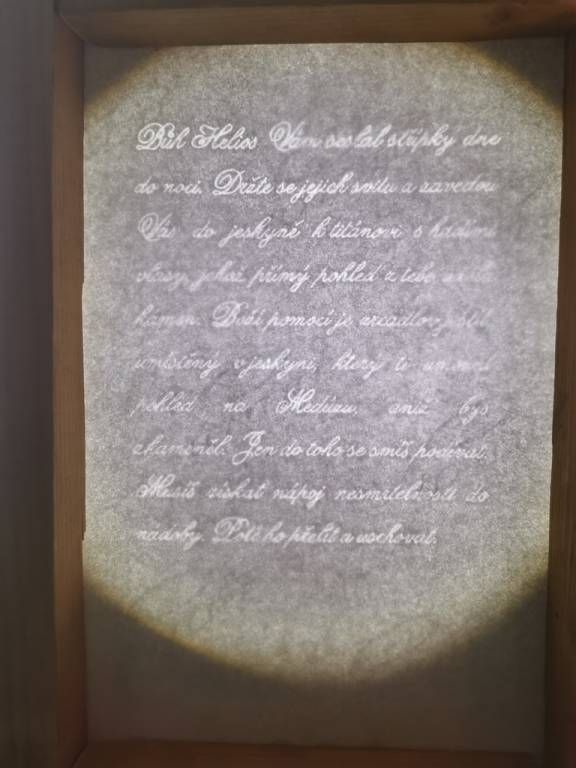 Bůh Helios Vám seslal střípky dne
do noci. Držte se jejich svitu a zavedou
Vás do jeskyně k titánovi s hadími
vlasy, jehož přímý pohled z tebe
kámen. Boží pomocí je zrcadlový štít
umístěný v jeskyni, který ti umožní
pohled na Medúzu, aniž bys
zkameněl. Jen do toho se smíš podívat.
Musíš získat nápoj nesmrtelnosti do
nádoby. Poté ho přelít a uschovat.